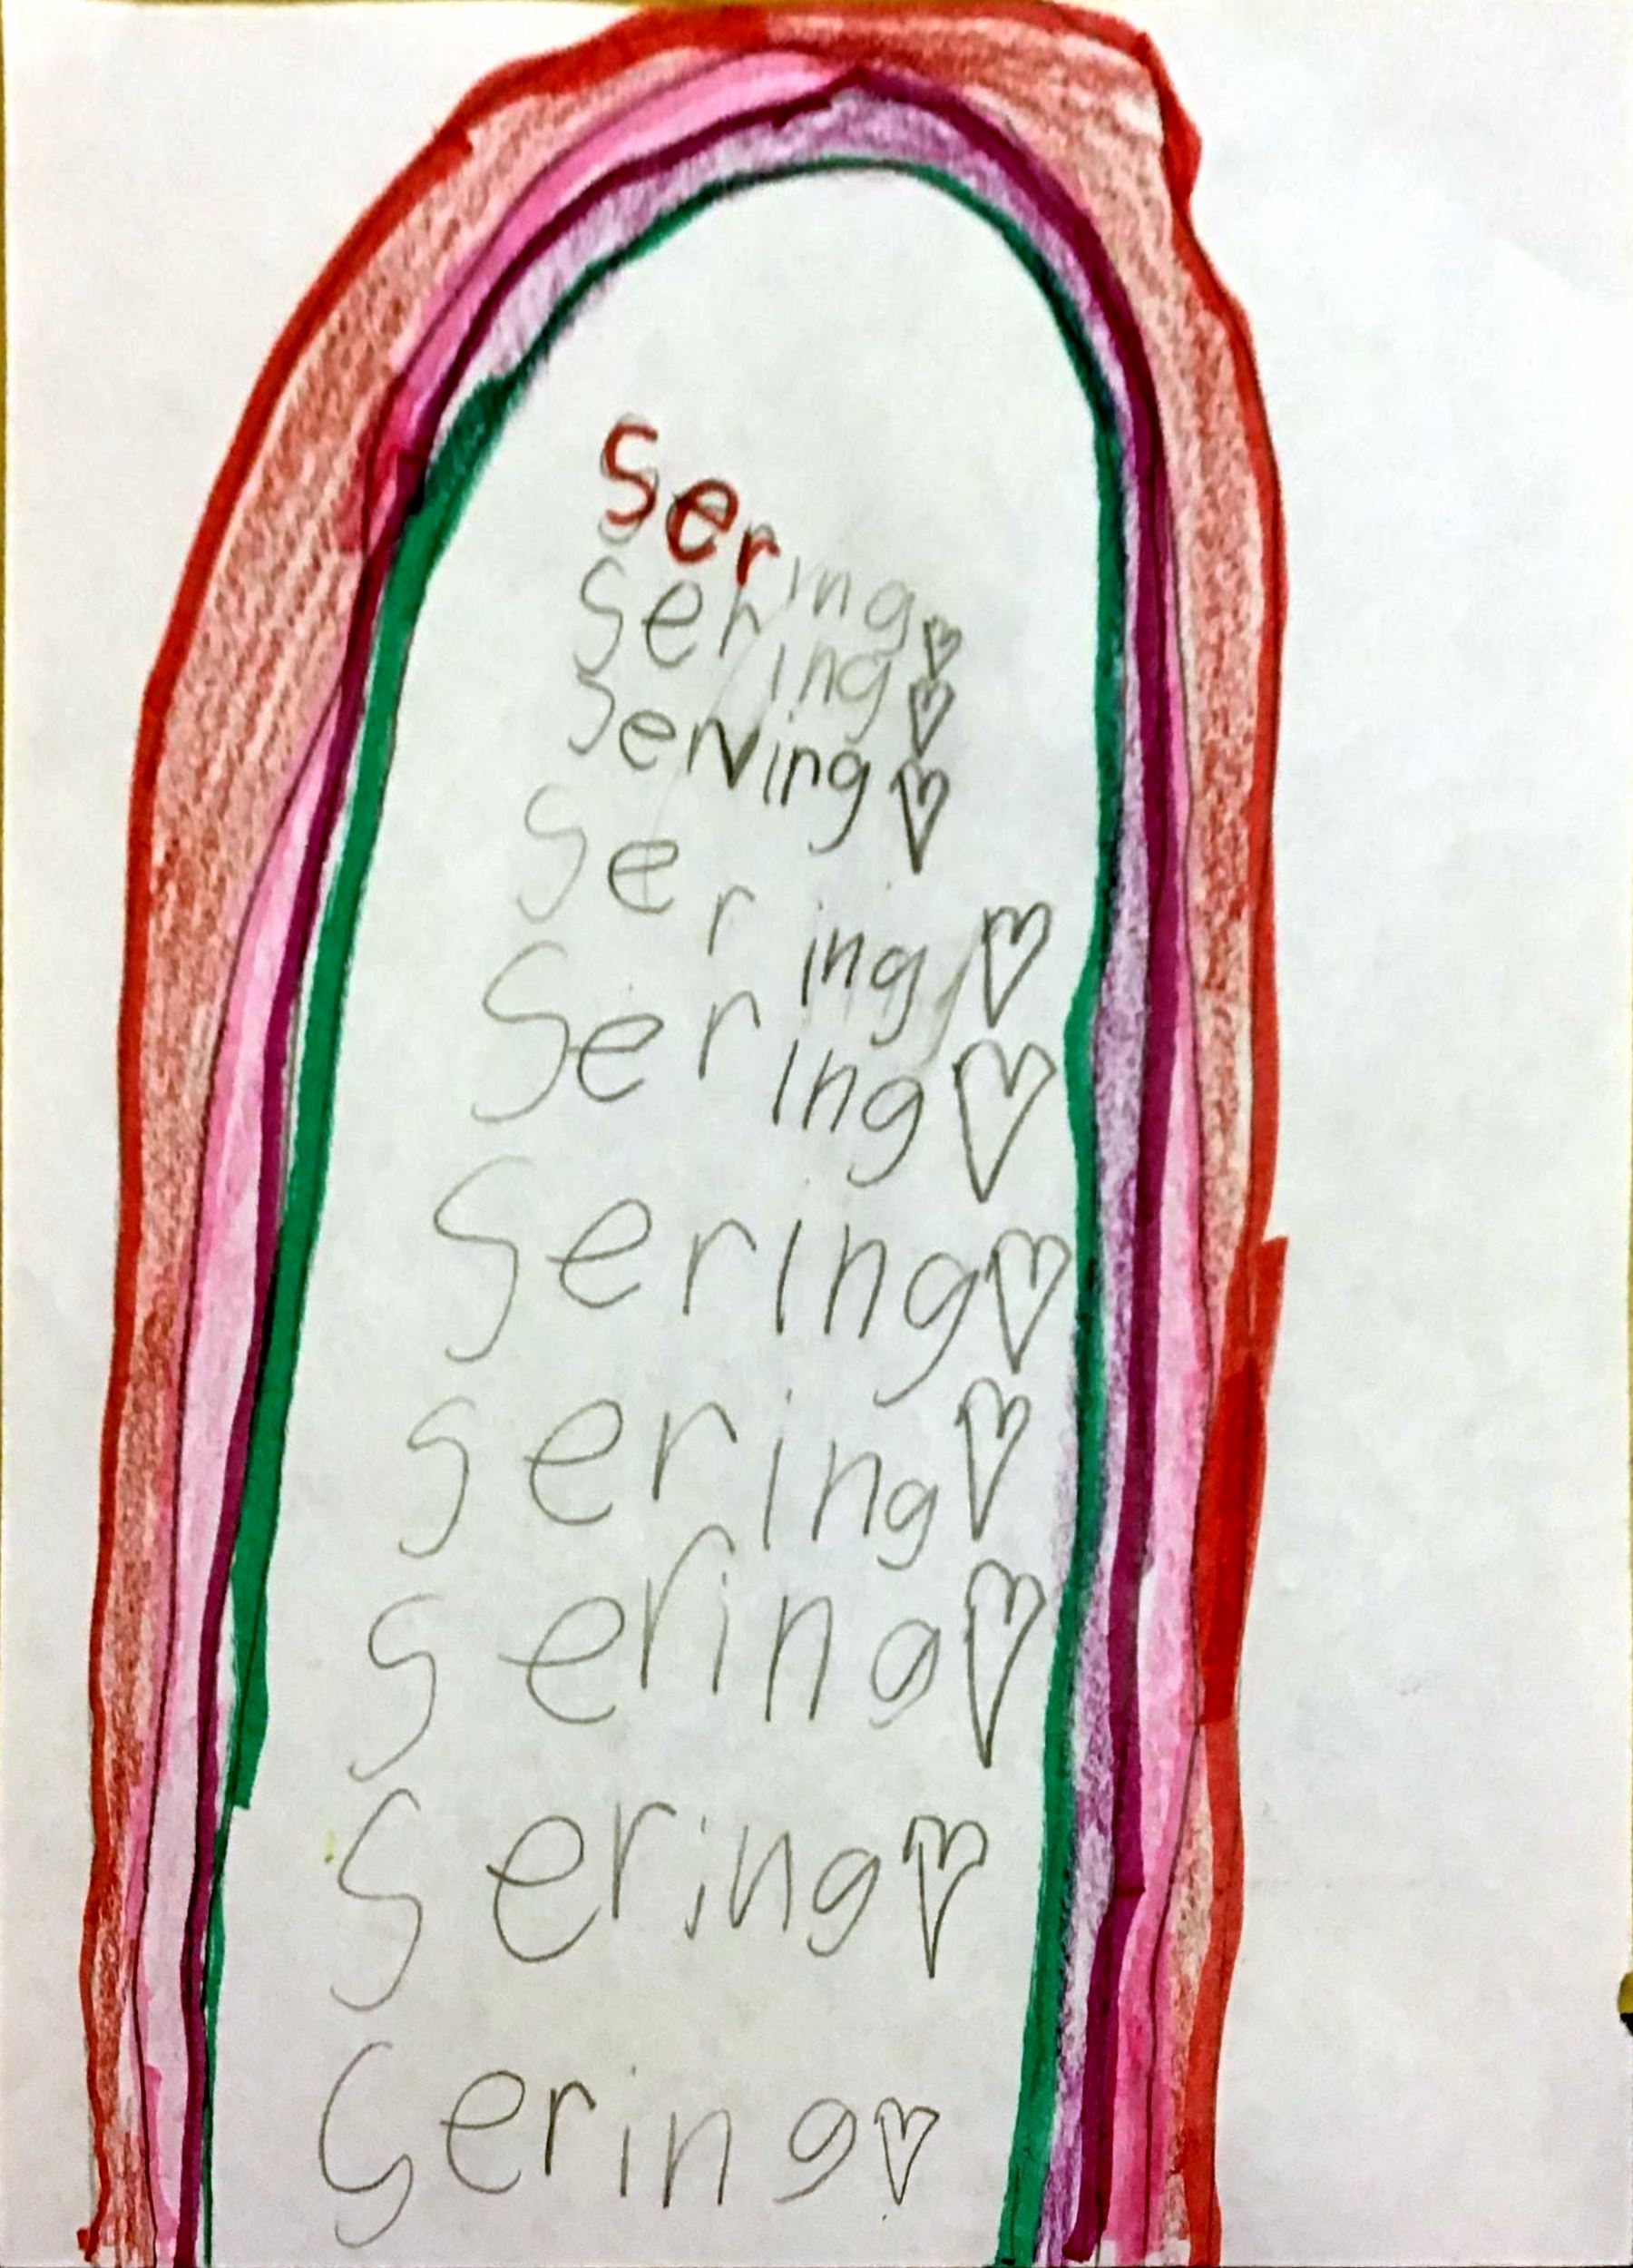 Sering
Sering
Serving
Sering
Sering
Sering
Sering
Sering
Sering
Sering